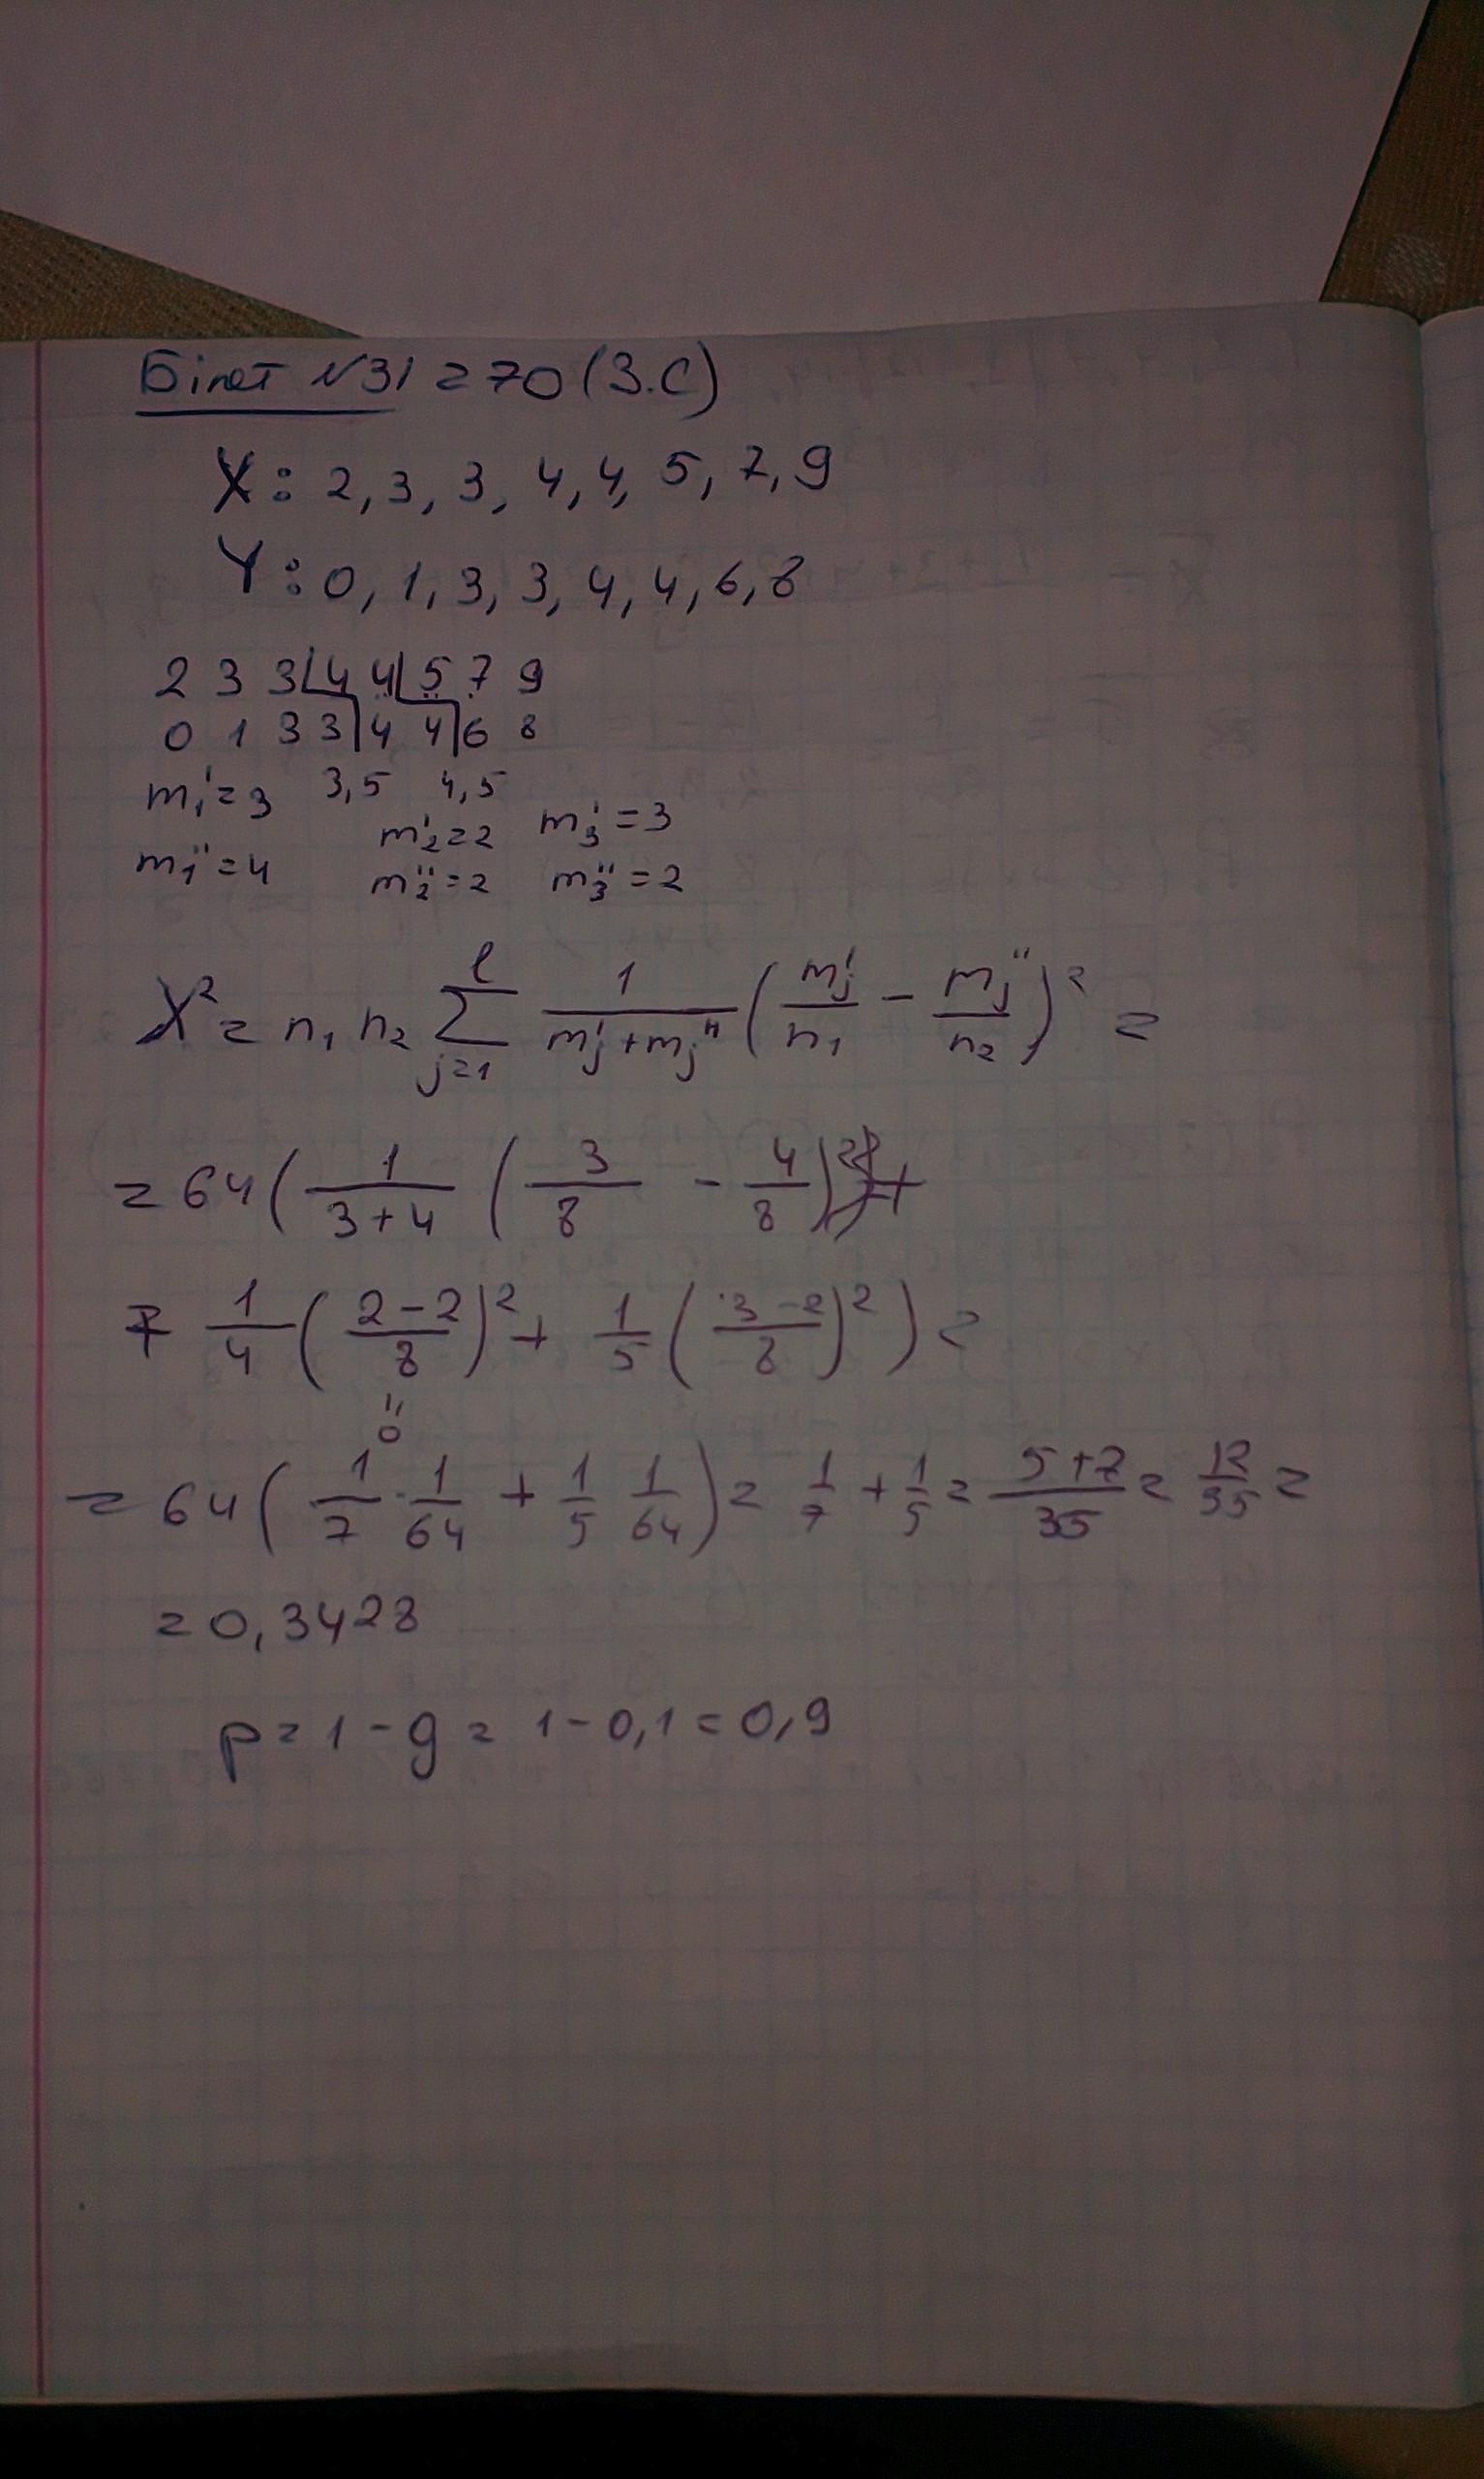 Білет №31 = 70 (З.С)
X: 2, 3, 3, 4, 4, 5, 7, 9
Y: 0, 1, 3, 3, 4, 4, 6, 8
2 3 3 | 4 4 | 5 7 9
0 1 3 3 | 4 4 | 6 8
m₁' = 3 3,5 4,5
m₂' = 2 m₃' = 3
m₁'' = 4 m₂'' = 2 m₃'' = 2
X² = n₁ n₂ ∑_{j=1}^{l} 1/(mⱼ' + mⱼ'') (mⱼ'/n₁ - mⱼ''/n₂)² =
= 64 (1/(3+4) (3/8 - 4/8)² +
+ 1/4 ((2-2)/8)² + 1/5 ((3-2)/8)²) =
"
0
= 64 (1/7 · 1/64 + 1/5 1/64) = 1/7 + 1/5 = (5+7)/35 = 12/35 =
= 0,3428
p = 1 - g = 1 - 0,1 = 0,9